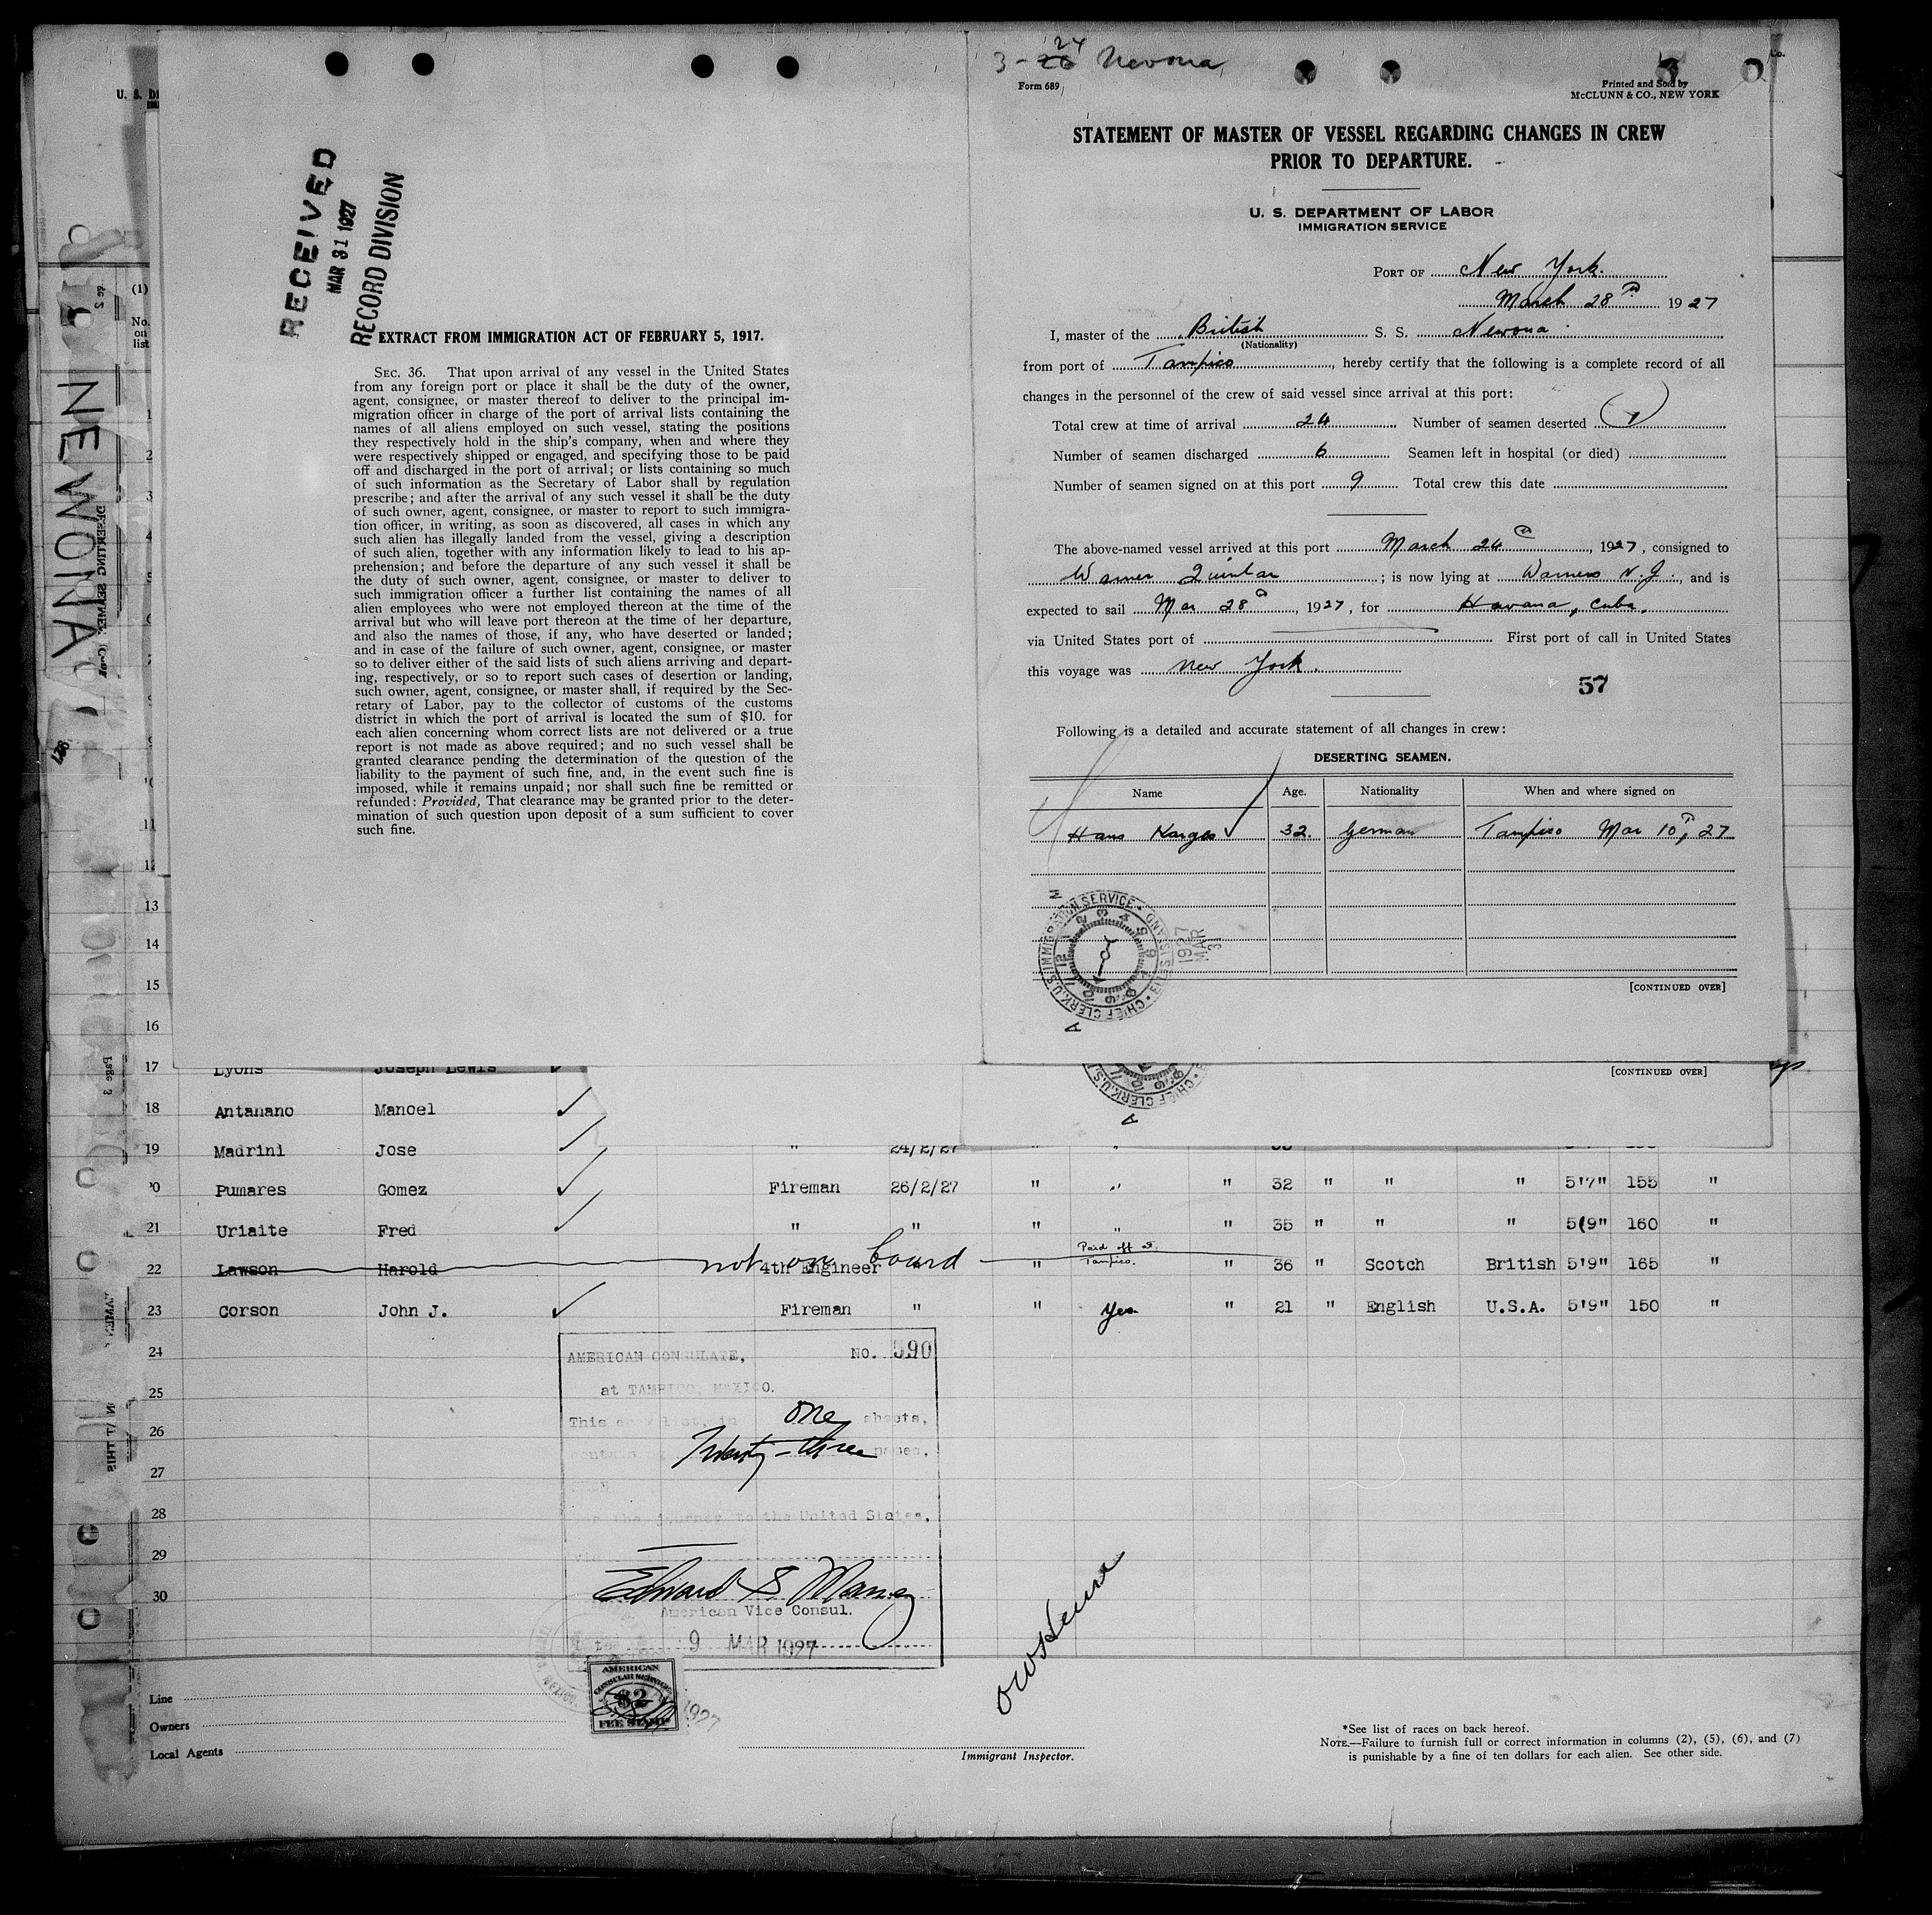 3-26 24 Newona
Form 689
Printed and Sold by
McCLUNN & CO., NEW YORK
STATEMENT OF MASTER OF VESSEL REGARDING CHANGES IN CREW
PRIOR TO DEPARTURE.
U. S. DEPARTMENT OF LABOR
IMMIGRATION SERVICE
PORT OF New York.
March 28th 1927
I, master of the British S. S. Newona
(Nationality)
from port of Tampico, hereby certify that the following is a complete record of all
changes in the personnel of the crew of said vessel since arrival at this port:
Total crew at time of arrival 24 Number of seamen deserted 1
Number of seamen discharged 6 Seamen left in hospital (or died)
Number of seamen signed on at this port 9 Total crew this date
The above-named vessel arrived at this port March 24th, 1927, consigned to
Warner Quinlan; is now lying at Warners N.J., and is
expected to sail Mar 28th, 1927, for Havana, Cuba.
via United States port of First port of call in United States
this voyage was New York.
57
Following is a detailed and accurate statement of all changes in crew:
DESERTING SEAMEN.
Name Age. Nationality When and where signed on
Hans Karges 32. German Tampico Mar 10th, 27
U.S. IMMIGRATION SERVICE • ELLIS ISLAND • CHIEF CLERK
1927
MAR
3
[CONTINUED OVER]
RECEIVED
MAR 31 1927
RECORD DIVISION
EXTRACT FROM IMMIGRATION ACT OF FEBRUARY 5, 1917.
SEC. 36. That upon arrival of any vessel in the United States
from any foreign port or place it shall be the duty of the owner,
agent, consignee, or master thereof to deliver to the principal im-
migration officer in charge of the port of arrival lists containing the
names of all aliens employed on such vessel, stating the positions
they respectively hold in the ship's company, when and where they
were respectively shipped or engaged, and specifying those to be paid
off and discharged in the port of arrival; or lists containing so much
of such information as the Secretary of Labor shall by regulation
prescribe; and after the arrival of any such vessel it shall be the duty
of such owner, agent, consignee, or master to report to such immigra-
tion officer, in writing, as soon as discovered, all cases in which any
such alien has illegally landed from the vessel, giving a description
of such alien, together with any information likely to lead to his ap-
prehension; and before the departure of any such vessel it shall be
the duty of such owner, agent, consignee, or master to deliver to
such immigration officer a further list containing the names of all
alien employees who were not employed thereon at the time of the
arrival but who will leave port thereon at the time of her departure,
and also the names of those, if any, who have deserted or landed;
and in case of the failure of such owner, agent, consignee, or master
so to deliver either of the said lists of such aliens arriving and depart-
ing, respectively, or so to report such cases of desertion or landing,
such owner, agent, consignee, or master shall, if required by the Sec-
retary of Labor, pay to the collector of customs of the customs
district in which the port of arrival is located the sum of $10. for
each alien concerning whom correct lists are not delivered or a true
report is not made as above required; and no such vessel shall be
granted clearance pending the determination of the question of the
liability to the payment of such fine, and, in the event such fine is
imposed, while it remains unpaid; nor shall such fine be remitted or
refunded: Provided, That clearance may be granted prior to the deter-
mination of such question upon deposit of a sum sufficient to cover
such fine.
NEWONA
(1)
No.
on
list
1
2
3
4
11
13
14
15
16
[CONTINUED OVER]
17 Lyons Joseph Lewis
18 Antanano Manoel
19 Madrini Jose " 24/2/27 " "
20 Pumares Gomez Fireman 26/2/27 " " " 32 " " " 5'7" 155 "
21 Uriaite Fred " " " " " 35 " " " 5'9" 160 "
22 Lawson Harold not on board 4th Engineer " " Paid off at Tampico. " 36 " Scotch British 5'9" 165 "
23 Corson John J. Fireman " " Yes " 21 " English U.S.A. 5'9" 150 "
24
25
26
27
28
29
30
AMERICAN CONSULATE, No. 590
at TAMPICO, MEXICO.
This crew list, in one sheets,
contains Twenty-three names.
the journey to the United States.
American Vice Consul.
9 MAR 1927
AMERICAN
CONSULAR SERVICE
$2
FEE STAMP
1927
Line
Owners
Local Agents
Immigrant Inspector.
*See list of races on back hereof.
NOTE.—Failure to furnish full or correct information in columns (2), (5), (6), and (7)
is punishable by a fine of ten dollars for each alien. See other side.